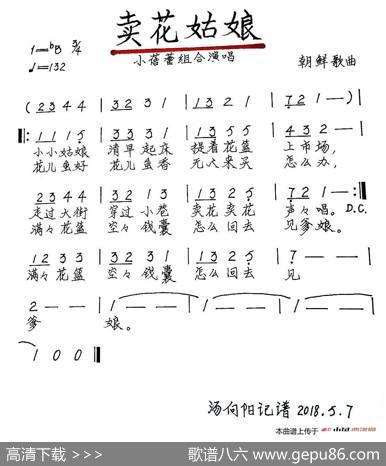 卖花姑娘
1=♭B 3/4
♩=132
小蓓蕾组合演唱
朝鲜歌曲
( 2 3 4 4 | 3 2 3 1 | 1 2 1 2 | 7 2 1 - ) |
‖: 1 1 1 5 | 3 3 2 3 | 1 3 5 5 | 4 3 2 - - |
小小姑娘 清早起床 提着花篮 上市场,
花儿虽好 花儿虽香 无人来买 怎么办,
2 3 4 4 | 3 2 3 1 | 1 2 3 2 5 | 7 2 1 - :‖
走过大街 穿过小巷 卖花卖花 声々唱。D.C.
满々花篮 空々钱囊 怎么回去 见爹娘。
1 2 3 3 | 3 2 3 3 | 1 2 3 2 5 | 7 - - |
满々花篮 空々钱囊 怎么回去 见
2 - - | 1 - - | 1 - - | 1 - - |
爹 娘。
1 0 0 ‖
汤向阳记谱 2018.5.7
本曲谱上传于
高清下载 >>>
歌谱八六 www.gepu86.com